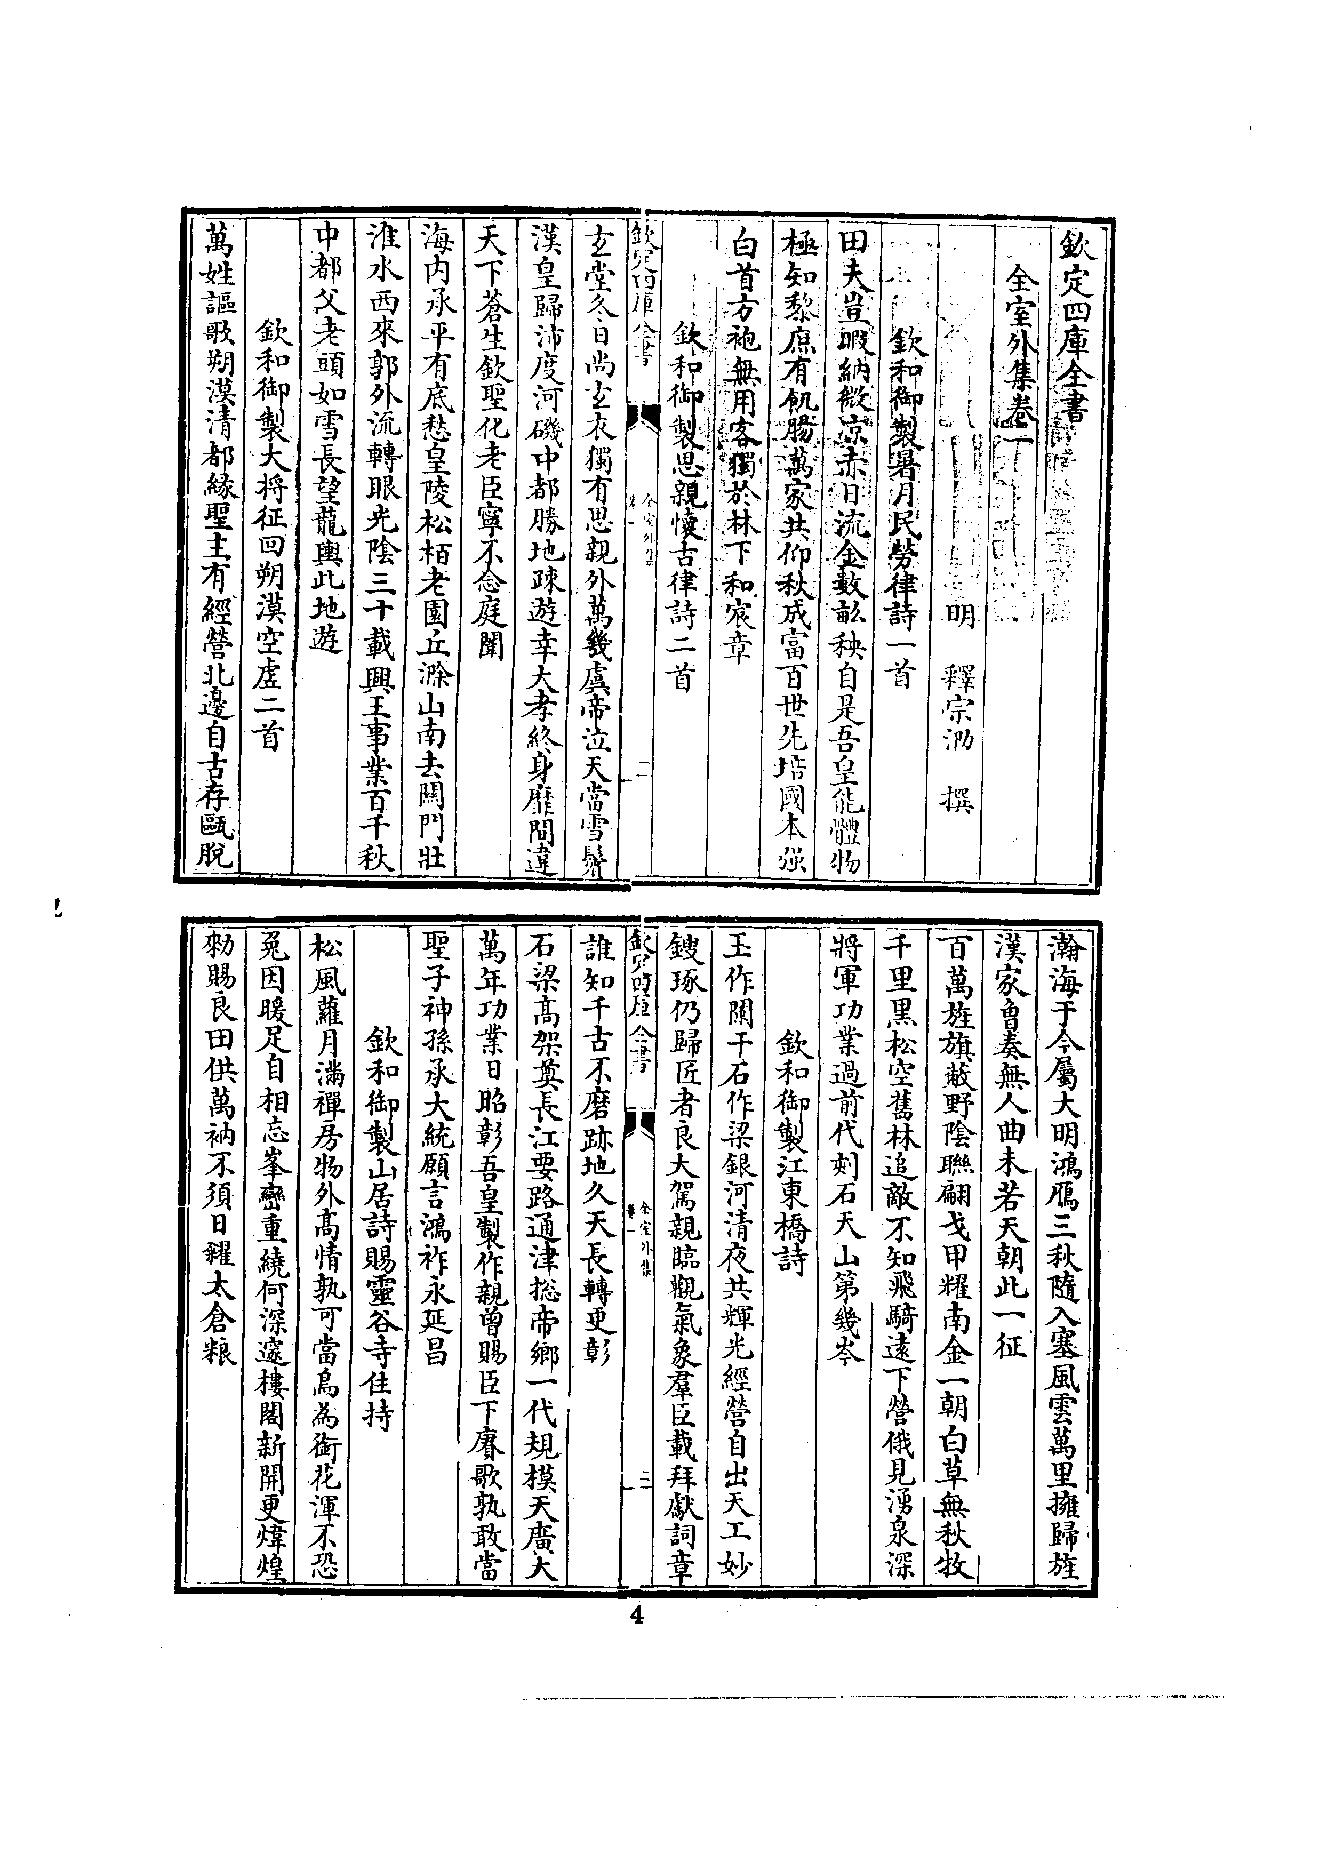 欽定四庫全書
全室外集卷一
明 釋宗泐 撰
欽和御製暑月民勞律詩一首
田夫豈暇納微凉赤日流金數畝秧自是吾皇能體物
極知黎庶有飢腸萬家共仰秋成富百世先培國本强
白首方袍無用客獨於林下和宸章
欽和御製思親懷古律詩二首
欽定四庫全書
全室外集
卷一
二
玄堂冬日尚玄衣獨有思親外萬幾虞帝泣天當雪鬢
漢皇歸沛度河磯中都勝地疎遊幸大孝終身靡間違
天下蒼生欽聖化老臣寧不念庭闈
海内承平有底愁皇陵松栢老園丘滁山南去關門壯
淮水西來郭外流轉眼光陰三十載興王事業百千秋
中都父老頭如雪長望龍輿此地遊
欽和御製大將征回朔漠空虛二首
萬姓謳歌朔漠清都緣聖主有經營北邊自古存甌脫
瀚海于今屬大明鴻鴈三秋隨入塞風雲萬里擁歸旌
漢家魯奏無人曲未若天朝此一征
百萬旌旗蔽野陰聯翩戈甲耀南金一朝白草無秋牧
千里黑松空舊林追敵不知飛騎遠下營俄見湧泉深
將軍功業過前代刻石天山第幾岑
欽和御製江東橋詩
玉作闌干石作梁銀河清夜共輝光經營自出天工妙
鎪琢仍歸匠者良大駕親臨觀氣象羣臣載拜獻詞章
欽定四庫全書
全室外集
卷一
二
誰知千古不磨跡地久天長轉更彰
石梁高架奠長江要路通津揔帝鄉一代規模天廣大
萬年功業日昭彰吾皇製作親曾賜臣下賡歌孰敢當
聖子神孫承大統願言鴻祚永延昌
欽和御製山居詩賜靈谷寺住持
松風蘿月滿禪房物外高情孰可當鳥為銜花渾不恐
兔因暖足自相忘峯巒重繞何深邃樓閣新開更煒煌
勑賜良田供萬衲不須日糴太倉粮
4